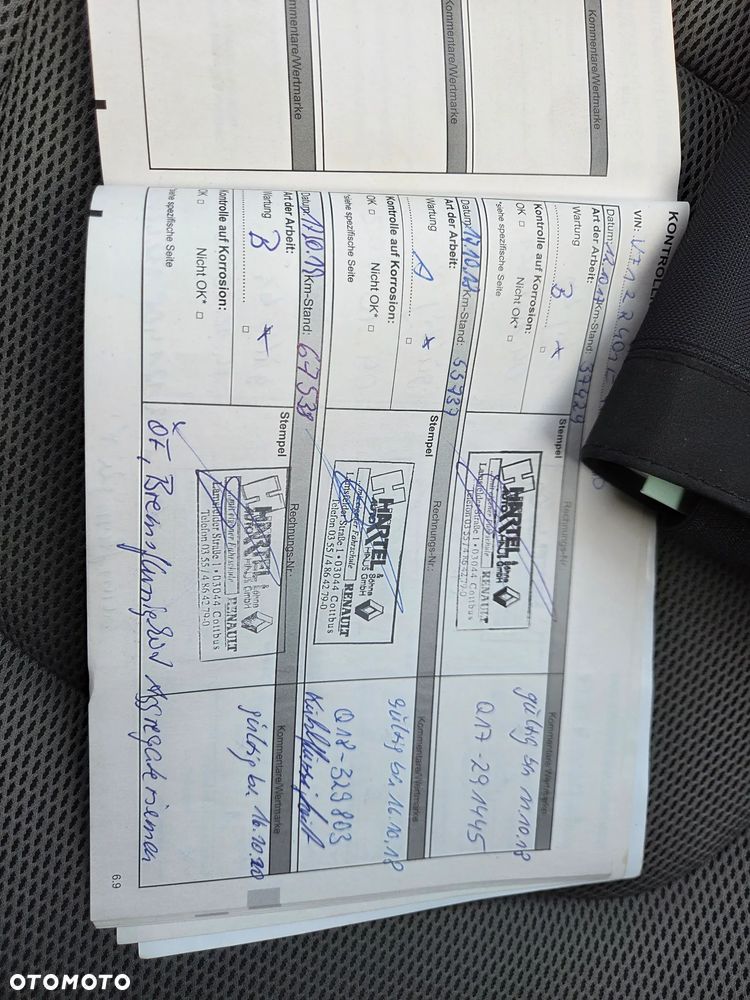 Kommentare/Wertmarke
Kommentare/Wertmarke
Kommentare/Wertmarke
VIN:
Datum: 12.10.17 Km-Stand: 37429
Art der Arbeit:
Stempel
Rechnungs-Nr.:
Wartung B
Kontrolle auf Korrosion:
OK Nicht OK*
*siehe spezifische Seite
HÄRTEL
& Söhne
AUTOHAUS GmbH
RENAULT
Lamsfelder Straße 1 • 03044 Cottbus
Telefon 03 55 / 4 86 42 79-0
gültig bis 11.10.18
Q17-291445
Datum: Km-Stand: 55737
Art der Arbeit:
Stempel
Rechnungs-Nr.:
Kommentare/Wertmarke
Wartung A
Kontrolle auf Korrosion:
OK Nicht OK*
*siehe spezifische Seite
HÄRTEL
& Söhne
AUTOHAUS GmbH
RENAULT
Lamsfelder Straße 1 • 03044 Cottbus
Telefon 03 55 / 4 86 42 79-0
gültig bis 16.10.18
Q18-329803
Kühlflüssigkeit
Datum: Km-Stand: 67538
Art der Arbeit:
Stempel
Rechnungs-Nr.:
Kommentare/Wertmarke
Wartung B
Kontrolle auf Korrosion:
OK Nicht OK*
*siehe spezifische Seite
HÄRTEL
& Söhne
AUTOHAUS GmbH
RENAULT
Lamsfelder Straße 1 • 03044 Cottbus
Telefon 03 55 / 4 86 42 79-0
gültig bis 16.10.20
Bremsflüssigkeit Aggregateriemen
6.9
OTOMOTO